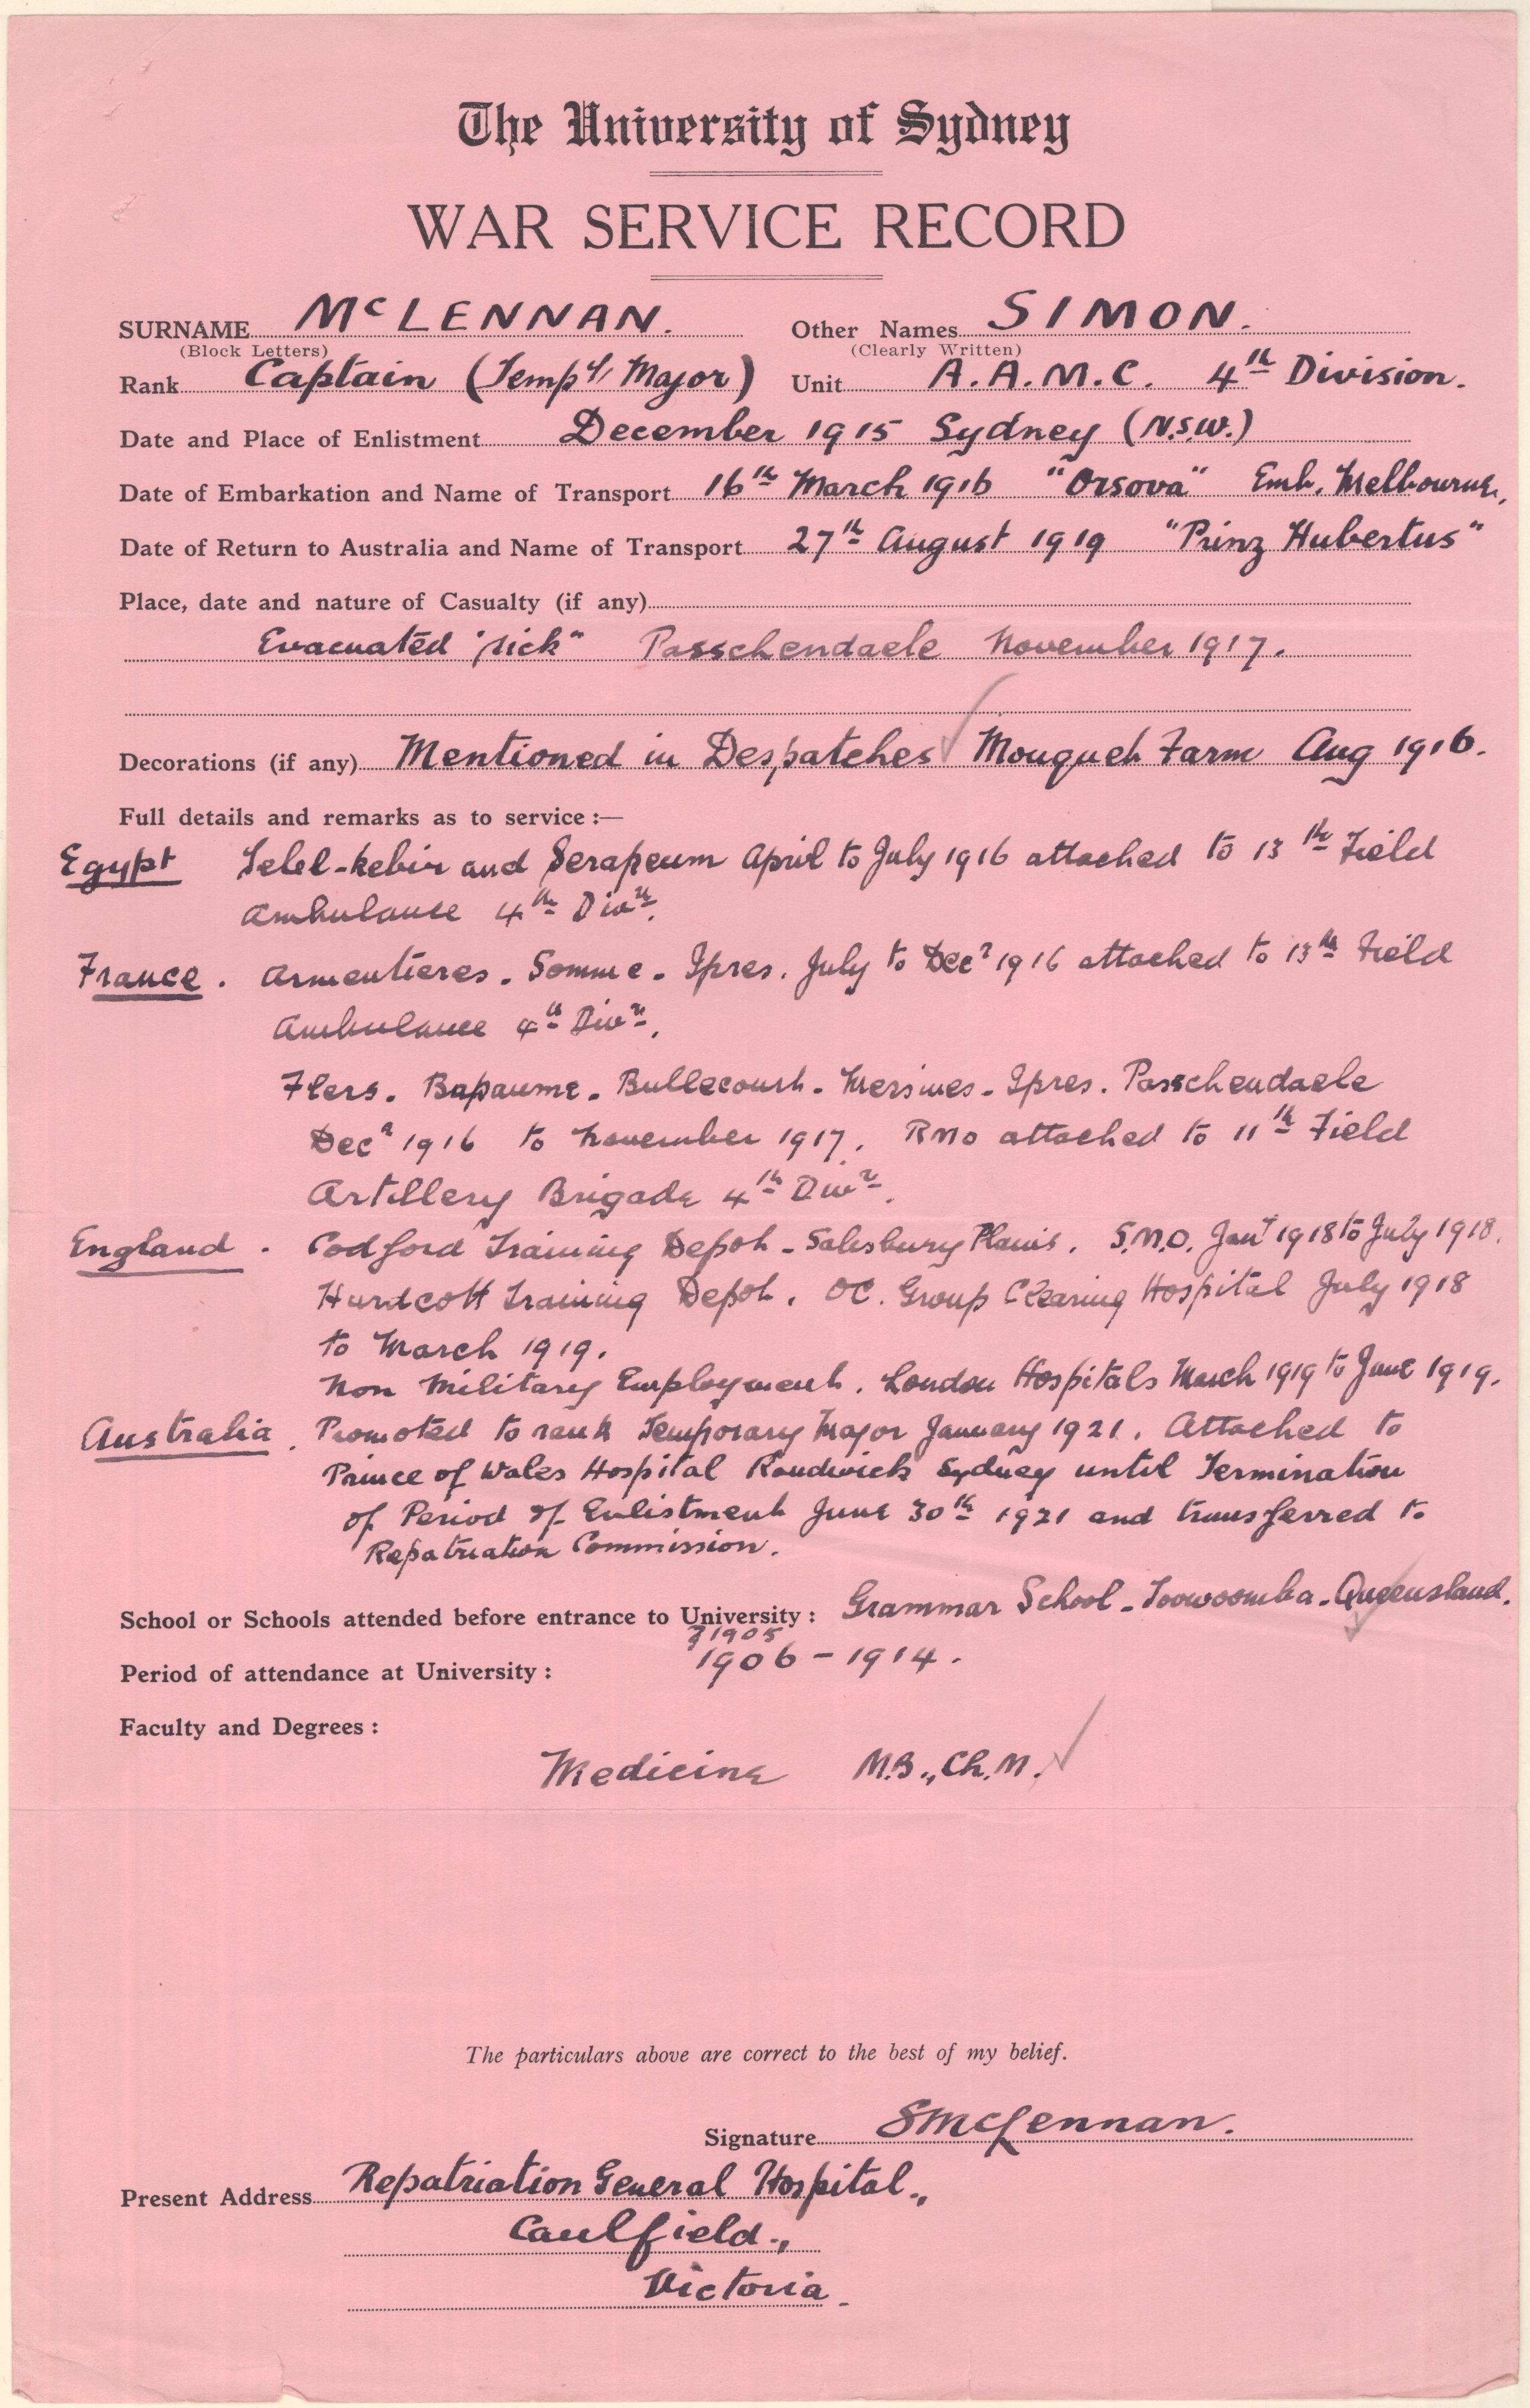 The University of Sydney
WAR SERVICE RECORD
SURNAME McLENNAN. Other Names SIMON.
(Block Letters) (Clearly Written)
Rank Captain (Tempy Major) Unit A.A.M.C. 4th Division.
Date and Place of Enlistment December 1915 Sydney (N.S.W.)
Date of Embarkation and Name of Transport 16th March 1916 "Orsova" Emb. Melbourne,
Date of Return to Australia and Name of Transport 27th August 1919 "Prinz Hubertus"
Place, date and nature of Casualty (if any)
Evacuated "sick" Passchendaele November 1917.
Decorations (if any) Mentioned in Despatches Mouqueh Farm Aug 1916.
Full details and remarks as to service :—
Egypt Telel-kebir and Serapeum April to July 1916 attached to 13th Field
Ambulance 4th Divn.
France. Armentieres. Somme. Ypres. July to Decr 1916 attached to 13th Field
Ambulance 4th Divn.
Flers. Bapaume. Bullecourt. Messines. Ypres. Passchendaele
Decr 1916 to November 1917. RMO attached to 11th Field
Artillery Brigade 4th Divn.
England. Codford Training Depot - Salesbury Plains. S.M.O. Jany 1918 to July 1918.
Hurdcott Training Depot. OC. Group Clearing Hospital July 1918
to March 1919.
Non Military Employment. London Hospitals March 1919 to June 1919.
Australia. Promoted to rank Temporary Major January 1921. Attached to
Prince of Wales Hospital Randwick Sydney until Termination
of Period of Enlistment June 30th 1921 and transferred to
Repatriation Commission.
School or Schools attended before entrance to University : Grammar School - Toowoomba - Queensland.
? 1905
Period of attendance at University : 1906 - 1914.
Faculty and Degrees :
Medicine M.B., Ch.M.
The particulars above are correct to the best of my belief.
Signature SMcLennan.
Present Address Repatriation General Hospital.,
Caulfield.,
Victoria.